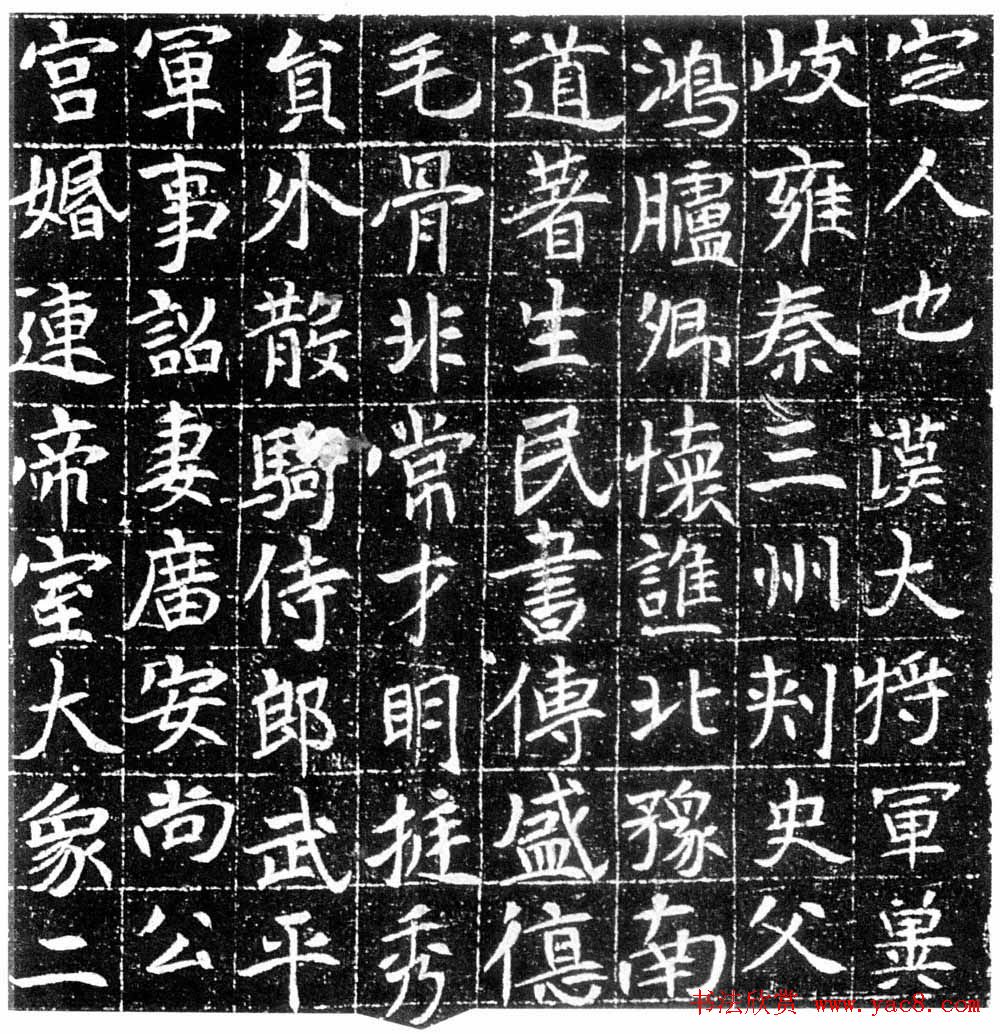 定人也漢大将軍冀
岐雍秦三州刾史父
鴻臚卿懷譙北豫南
道著生民書傳盛德
毛骨非常才明挺秀
員外散騎侍郎武平
軍事詔妻廣安尚公
宮婚連帝室大象二
书法欣赏 www.yac8.com